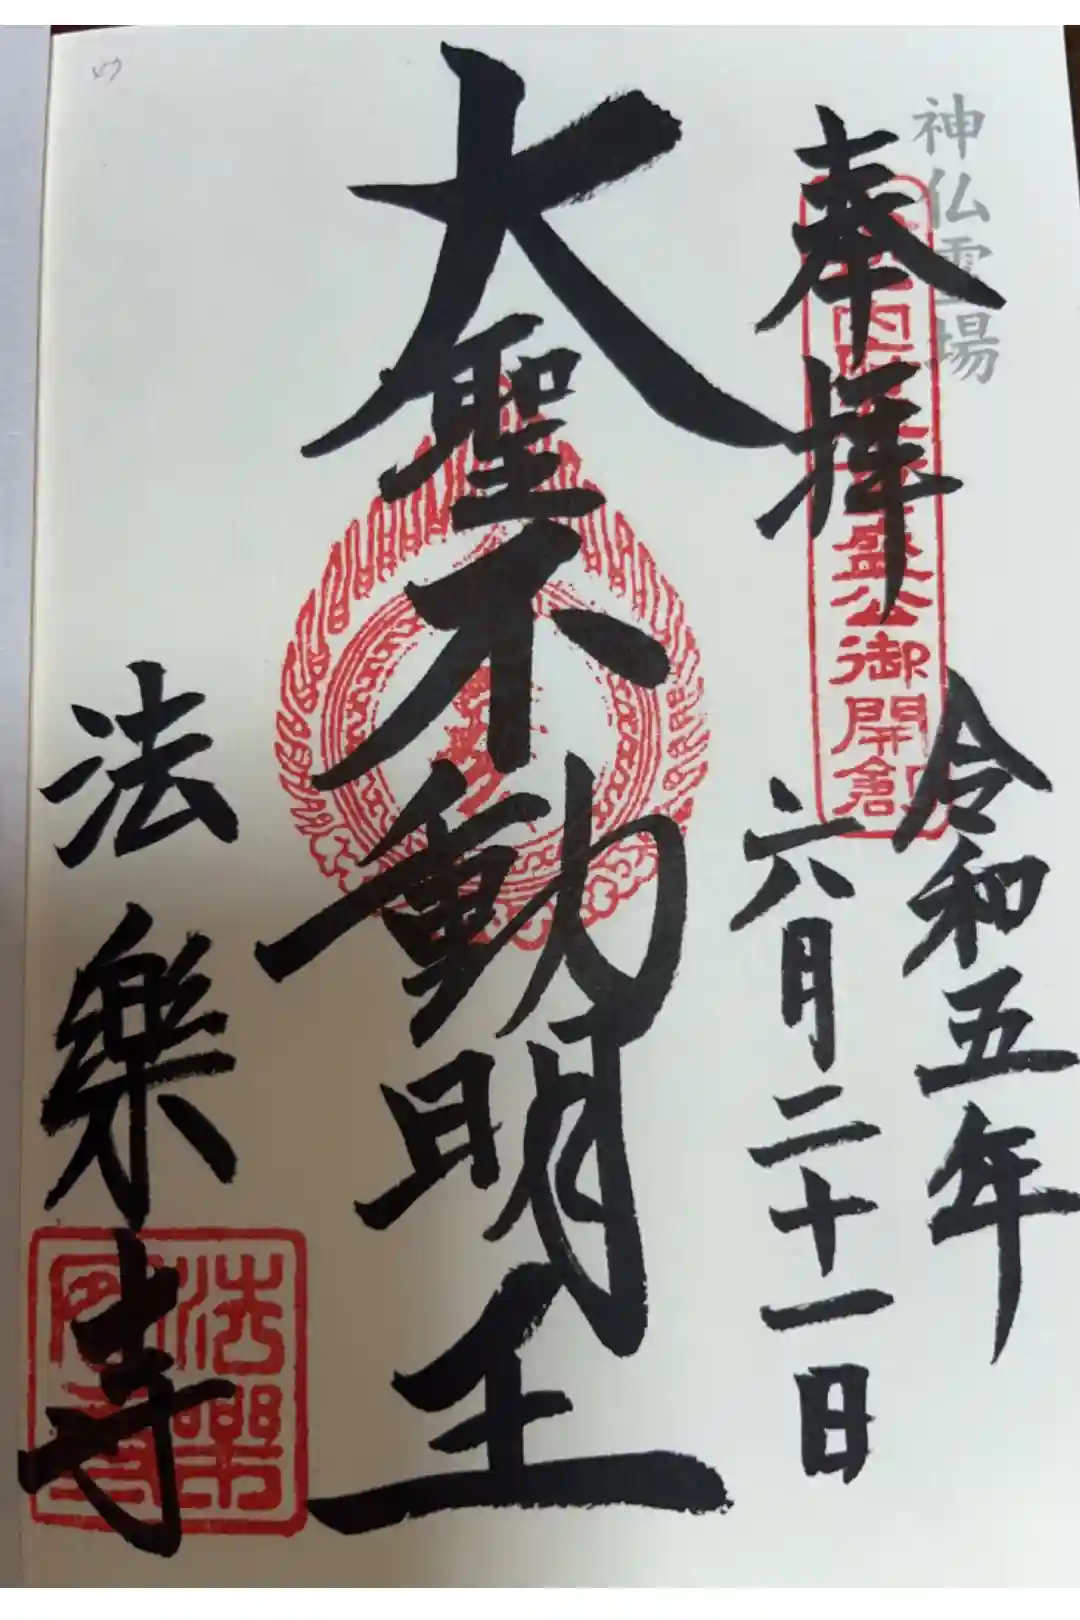 神仏霊場
奉拝
内
盛公御開創
令和五年
六月二十一日
大聖不動明王
法樂寺
法樂